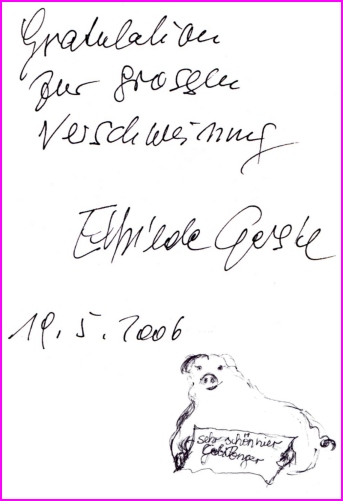 Gratulation
zur grossen
Verschweinung
Elfriede Gerstl
19.5.2006
sehr schön hier